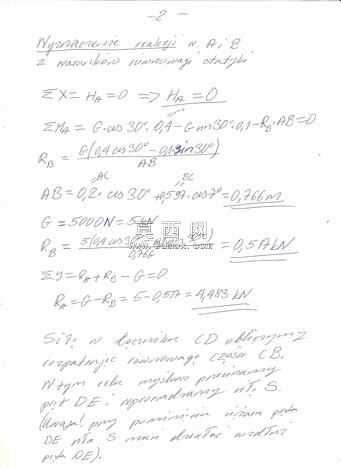 - 2 -
Wyznaczenie reakcji w A i B
z warunków równowagi statyki
ΣX = H_A = 0 => H_A = 0
ΣM_A = G·cos30°·0,4 - G sin30°·0,1 - R_B·AB = 0
R_B = G(0,4cos30° - 0,1sin30°) / AB
AB = 0,2·cos30° + 0,597·cos7° = 0,766m
G = 5000N = 5kN
R_B = 5(0,4cos30° / 0,766 = 0,517kN
ΣY = R_A + R_B - G = 0
R_A = G - R_B = 5 - 0,517 = 4,483 kN
Siłę w łączniku CD obliczymy
rozpatrując równowagę części CB.
W tym celu myślowo przecinamy
pręt DE i wprowadzamy siłę S.
(Uwaga! przy pominięciu ciężaru pręta
DE siła S musi działać wzdłuż
pręta DE).